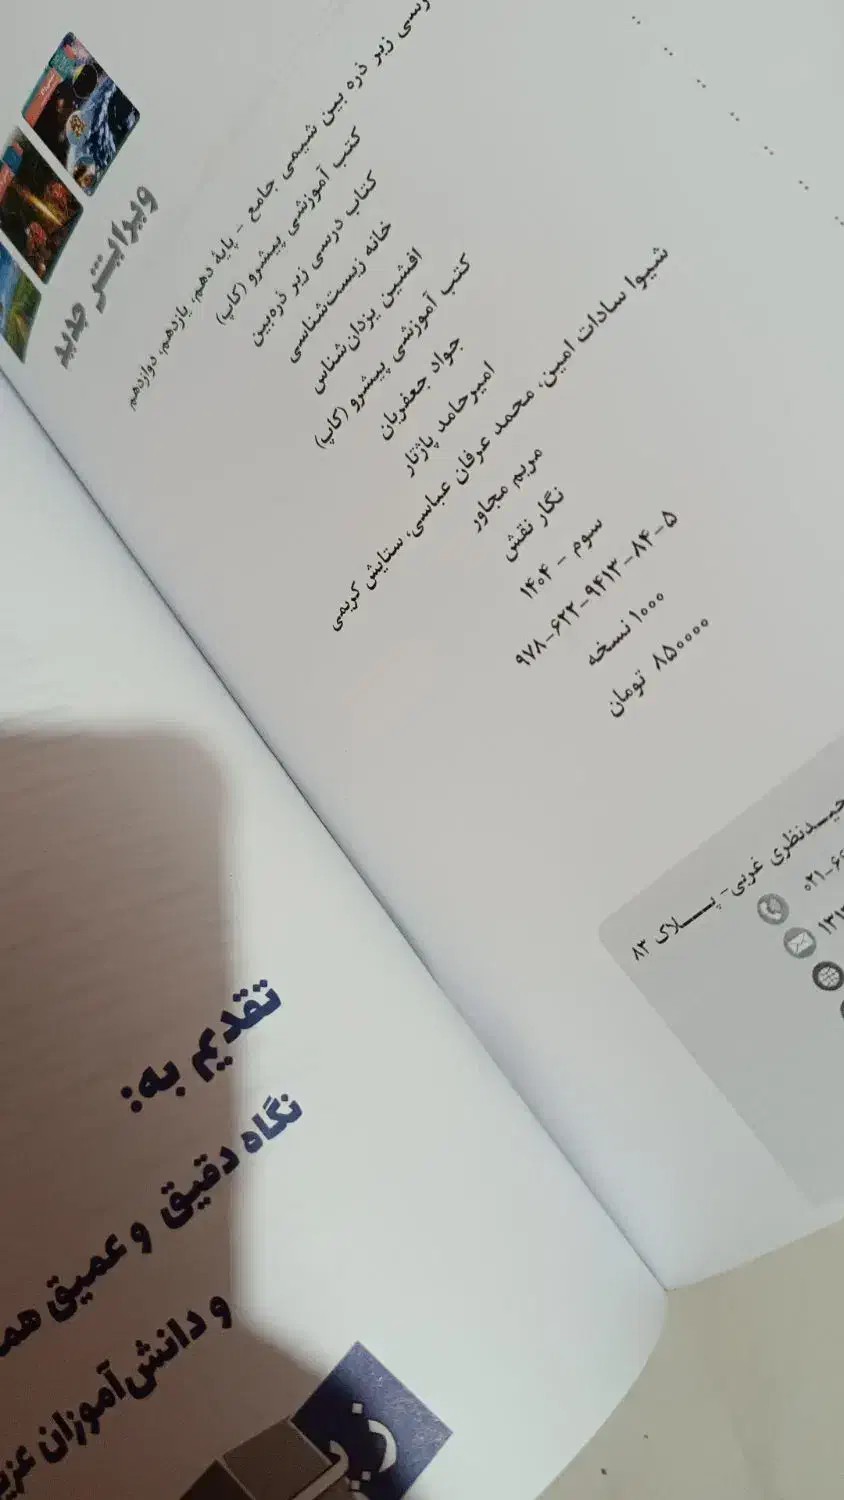 ویرایش جدید
زیر ذره بین شیمی جامع - پایهٔ دهم، یازدهم، دوازدهم
کتب آموزشی پیشرو (کاپ)
کتاب درسی زیر ذره‌بین
خانه زیست‌شناسی
افشین یزدان‌شناس
کتب آموزشی پیشرو (کاپ)
جواد جعفریان
امیرحامد پاژتار
شیوا سادات امین، محمد عرفان عباسی، ستایش کریمی
مریم مجاور
نگار نقش
سوم - ۱۴۰۴
۹۷۸-۶۲۲-۹۴۱۳-۸۴-۵
۱۰۰۰ نسخه
۸۵۰۰۰۰ تومان
غربی- پـــلاک ۸۳
تقدیم به:
نگاه دقیق و عمیق
و دانش‌آموزان